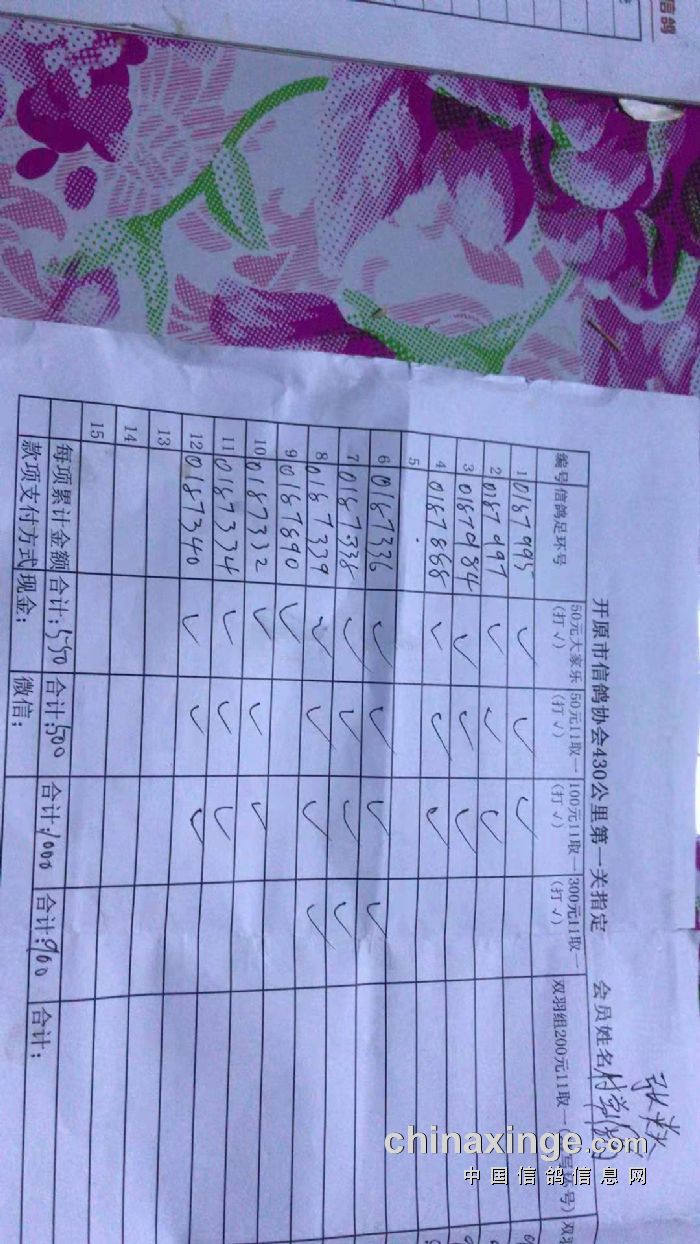 信鸽
开原市信鸽协会430公里第一关指定 会员姓名
编号 信鸽足环号 50元大家乐(打√) 50元11取一(打√) 100元11取一(打√) 300元11取一(打√) 双羽组200元11取一
1 0187995 ✓ ✓ ✓
2 0187997 ✓ ✓ ✓
3 0187984 ✓ ✓ ✓
4 0187868 ✓ ✓ ✓
5
6 0187336 ✓ ✓ ✓ ✓
7 0187338 ✓ ✓ ✓ ✓
8 0187339 ✓ ✓ ✓ ✓
9 0187890 ✓
10 0187332 ✓ ✓ ✓
11 0187334 ✓ ✓ ✓
12 0187340 ✓ ✓ ✓
13
14
15
每项累计金额 合计:550 合计:500 合计:1000 合计:900 合计:
款项支付方式 现金: 微信:
chinaxinge.com
中国信鸽信息网